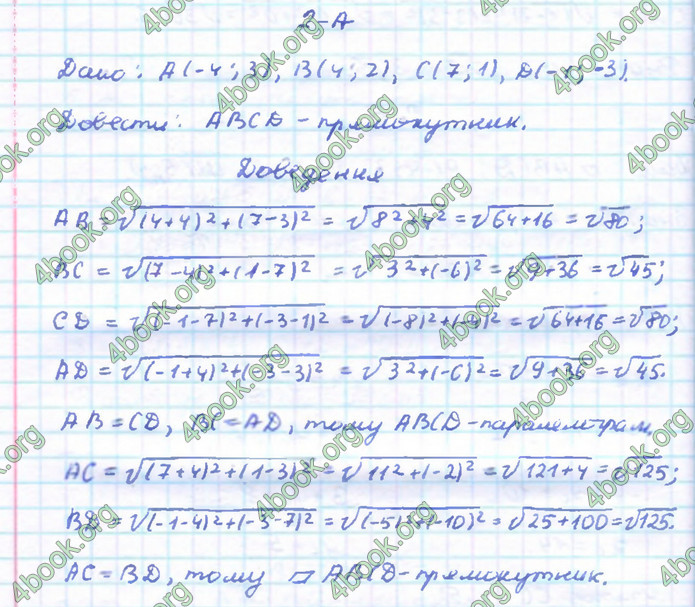 2-А
Дано: A(-4; 3), B(4; 2), C(7; 1), D(-1; -3).
Довести: ABCD - прямокутник.
Доведення
AB = √(4+4)²+(7-3)² = √8²+4² = √64+16 = √80;
BC = √(7-4)²+(1-7)² = √3²+(-6)² = √9+36 = √45;
CD = √(-1-7)²+(-3-1)² = √(-8)²+(-4)² = √64+16 = √80;
AD = √(-1+4)²+(-3-3)² = √3²+(-6)² = √9+36 = √45.
AB = CD, BC = AD, тому ABCD - паралелограм.
AC = √(7+4)²+(1-3)² = √11²+(-2)² = √121+4 = √125;
BD = √(-1-4)²+(-3-7)² = √(-5)²+(-10)² = √25+100 = √125.
AC = BD, тому ▱ ABCD - прямокутник.
4book.org